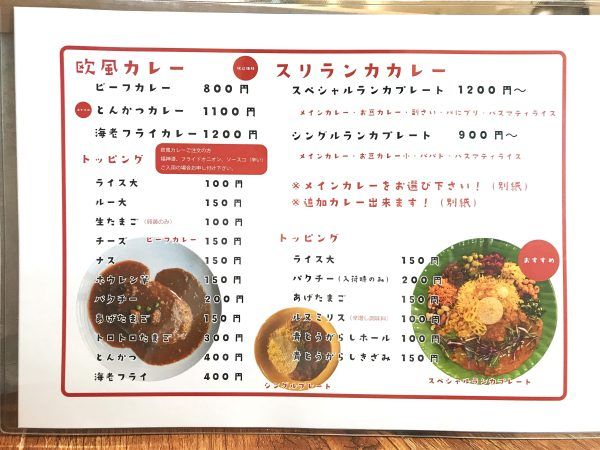 欧風カレー
ビーフカレー 800円
とんかつカレー 1100円
海老フライカレー 1200円
欧風カレーご注文の方
福神漬、フライドオニオン、ソースコ（辛い）
ご入用の場合お申し付け下さい。
トッピング
ライス大 100円
ルー大 150円
生たまご（卵黄のみ） 100円
チーズ 150円
ナス 150円
ホウレン草 150円
パクチー 200円
あげたまご 150円
トロトロたまご 300円
とんかつ 400円
海老フライ 400円
ビーフカレー
スリランカカレー
スペシャルランカプレート 1200円〜
メインカレー・お豆カレー・副さい・パニプリ・バスマティライス
シングルランカプレート 900円〜
メインカレー・お豆カレー小・パパド・バスマティライス
※メインカレーをお選び下さい！（別紙）
※追加カレー出来ます！（別紙）
トッピング
ライス大 150円
パクチー（入荷時のみ） 200円
あげたまご 150円
ルヌミリス（辛増し調味料） 100円
青とうがらしホール 150円
青とうがらしきざみ 150円
シングルプレート
おすすめ
スペシャルランカプレート